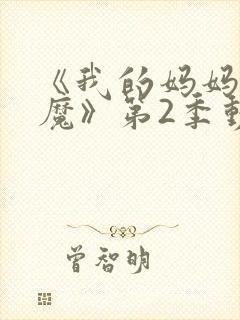 《我的妈妈
魔》第2季
曾智明